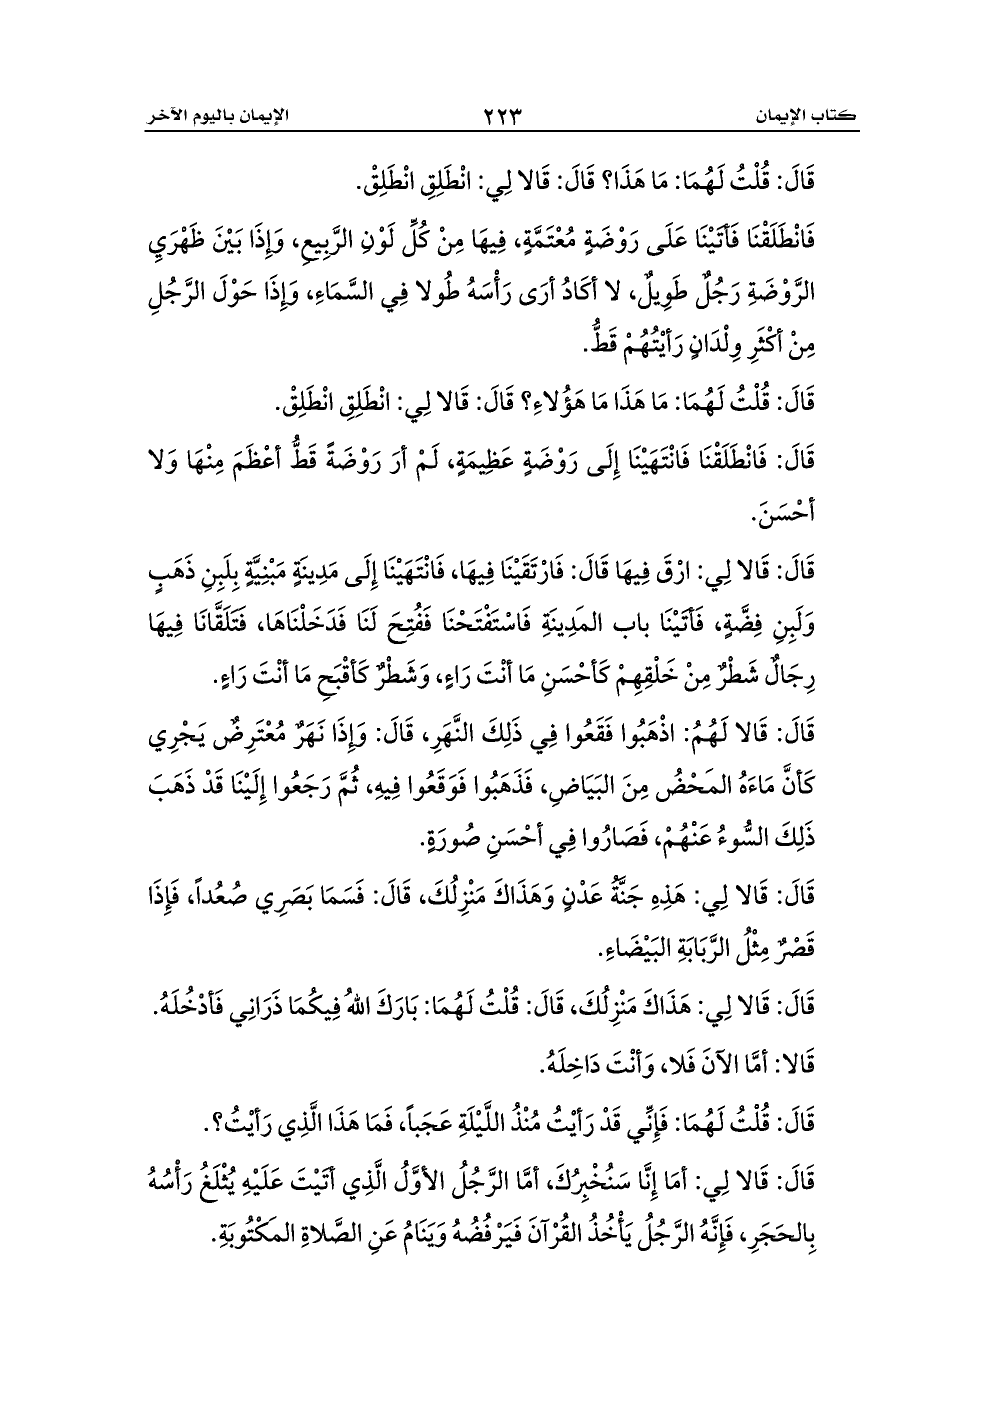 كتاب الإيمان ٢٢٣ الإيمان باليوم الآخر
قَالَ: قُلْتُ لَهُمَا: مَا هَذَا؟ قَالَ: قَالا لِي: انْطَلِقِ انْطَلِقْ.
فَانْطَلَقْنَا فَأتَيْنَا عَلَى رَوْضَةٍ مُعْتَمَّةٍ، فِيهَا مِنْ كُلِّ لَوْنِ الرَّبِيعِ، وَإِذَا بَيْنَ ظَهْرَيِ
الرَّوْضَةِ رَجُلٌ طَوِيلٌ، لا أكَادُ أرَى رَأْسَهُ طُولا فِي السَّمَاءِ، وَإِذَا حَوْلَ الرَّجُلِ
مِنْ أكْثَرِ وِلْدَانٍ رَأيْتُهُمْ قَطُّ.
قَالَ: قُلْتُ لَهُمَا: مَا هَذَا مَا هَؤُلاءِ؟ قَالَ: قَالا لِي: انْطَلِقِ انْطَلِقْ.
قَالَ: فَانْطَلَقْنَا فَانْتَهَيْنَا إِلَى رَوْضَةٍ عَظِيمَةٍ، لَمْ أرَ رَوْضَةً قَطُّ أعْظَمَ مِنْهَا وَلا
أحْسَنَ.
قَالَ: قَالا لِي: ارْقَ فِيهَا قَالَ: فَارْتَقَيْنَا فِيهَا، فَانْتَهَيْنَا إِلَى مَدِينَةٍ مَبْنِيَّةٍ بِلَبِنِ ذَهَبٍ
وَلَبِنِ فِضَّةٍ، فَأتَيْنَا باب المَدِينَةِ فَاسْتَفْتَحْنَا فَفُتِحَ لَنَا فَدَخَلْنَاهَا، فَتَلَقَّانَا فِيهَا
رِجَالٌ شَطْرٌ مِنْ خَلْقِهِمْ كَأحْسَنِ مَا أنْتَ رَاءٍ، وَشَطْرٌ كَأقْبَحِ مَا أنْتَ رَاءٍ.
قَالَ: قَالا لَهُمُ: اذْهَبُوا فَقَعُوا فِي ذَلِكَ النَّهَرِ، قَالَ: وَإِذَا نَهَرٌ مُعْتَرِضٌ يَجْرِي
كَأنَّ مَاءَهُ المَحْضُ مِنَ البَيَاضِ، فَذَهَبُوا فَوَقَعُوا فِيهِ، ثُمَّ رَجَعُوا إِلَيْنَا قَدْ ذَهَبَ
ذَلِكَ السُّوءُ عَنْهُمْ، فَصَارُوا فِي أحْسَنِ صُورَةٍ.
قَالَ: قَالا لِي: هَذِهِ جَنَّةُ عَدْنٍ وَهَذَاكَ مَنْزِلُكَ، قَالَ: فَسَمَا بَصَرِي صُعُداً، فَإِذَا
قَصْرٌ مِثْلُ الرَّبَابَةِ البَيْضَاءِ.
قَالَ: قَالا لِي: هَذَاكَ مَنْزِلُكَ، قَالَ: قُلْتُ لَهُمَا: بَارَكَ اللهُ فِيكُمَا ذَرَانِي فَأدْخُلَهُ.
قَالا: أمَّا الآنَ فَلا، وَأنْتَ دَاخِلَهُ.
قَالَ: قُلْتُ لَهُمَا: فَإِنِّي قَدْ رَأيْتُ مُنْذُ اللَّيْلَةِ عَجَباً، فَمَا هَذَا الَّذِي رَأيْتُ؟.
قَالَ: قَالا لِي: أمَا إِنَّا سَنُخْبِرُكَ، أمَّا الرَّجُلُ الأوَّلُ الَّذِي أتَيْتَ عَلَيْهِ يُثْلَغُ رَأْسُهُ
بِالحَجَرِ، فَإِنَّهُ الرَّجُلُ يَأْخُذُ القُرْآنَ فَيَرْفُضُهُ وَيَنَامُ عَنِ الصَّلاةِ المَكْتُوبَةِ.